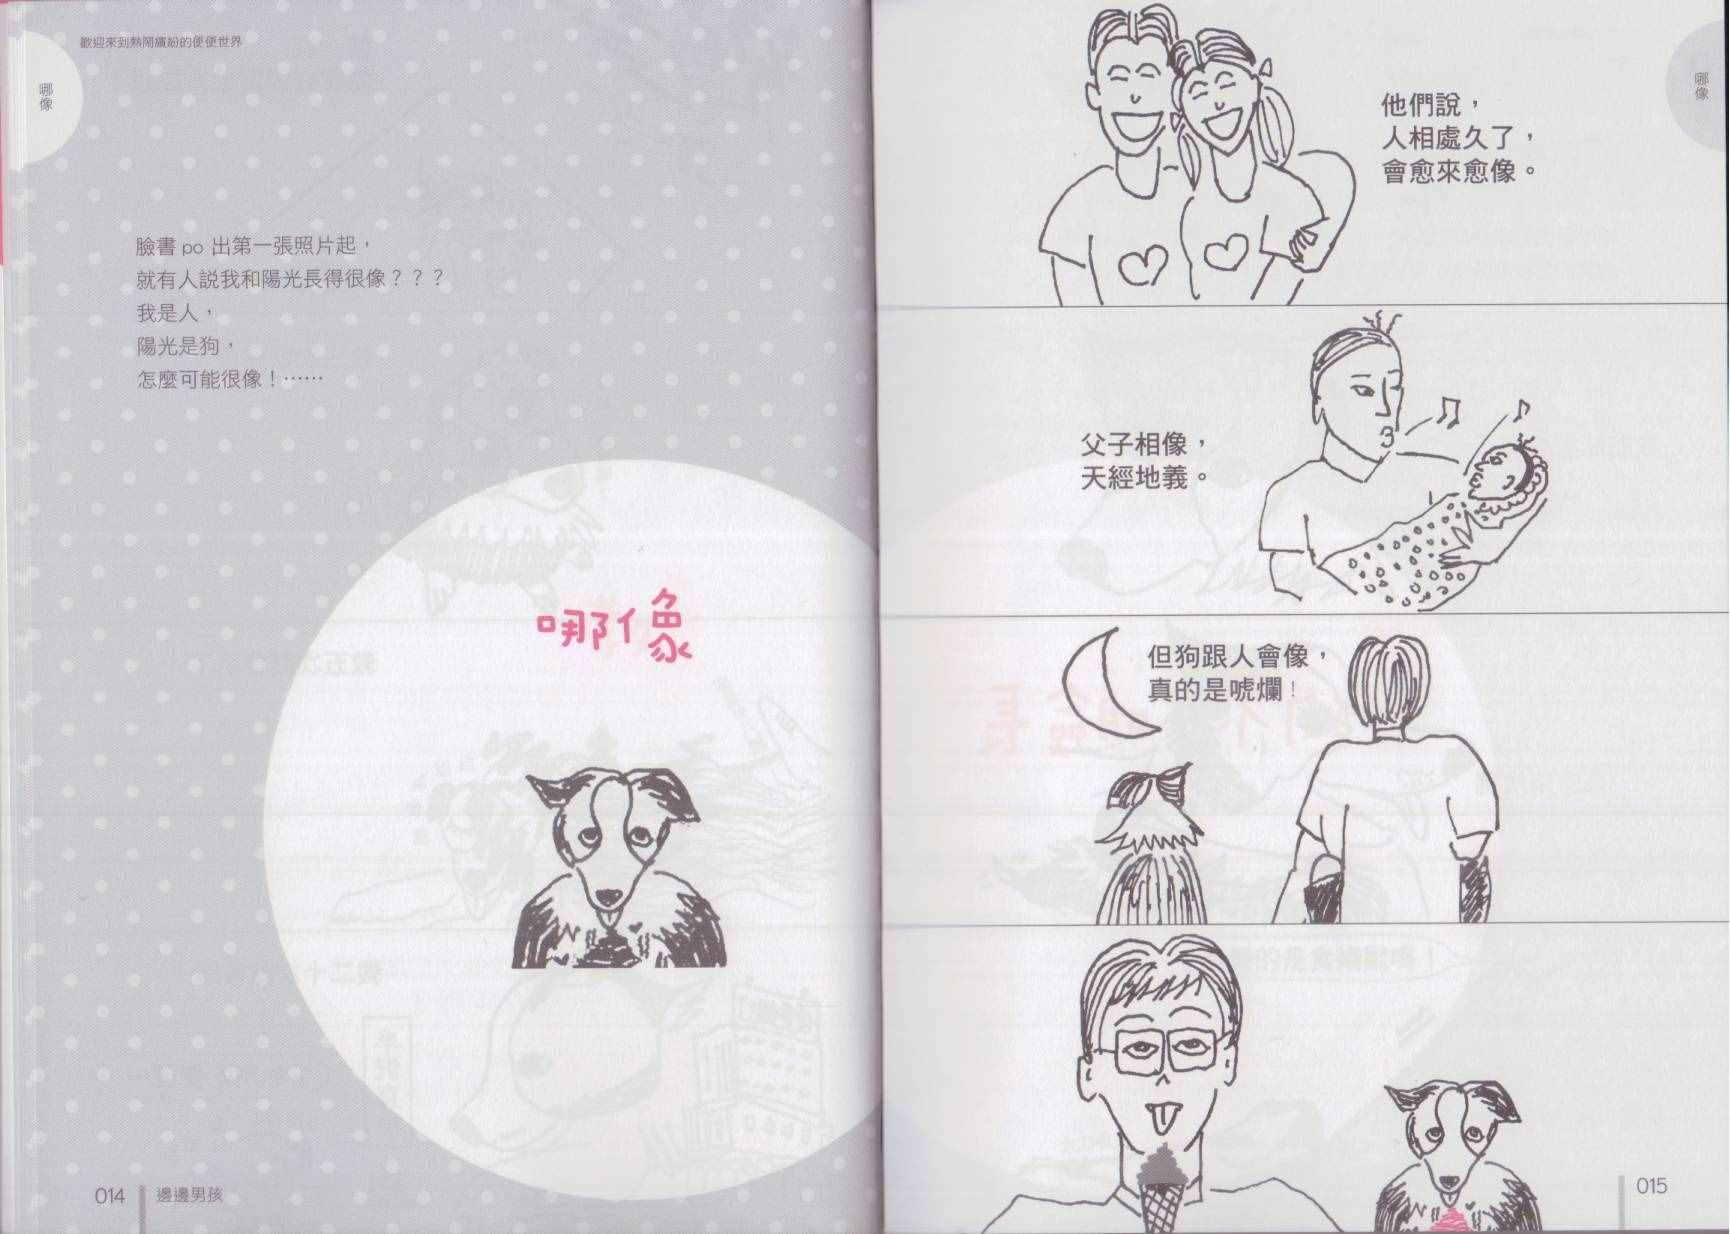 歡迎來到熱鬧繽紛的便便世界
哪像
臉書 po 出第一張照片起，
就有人說我和陽光長得很像？？？
我是人，
陽光是狗，
怎麼可能很像！……
哪像
014
邊邊男孩
哪像
他們說，
人相處久了，
會愈來愈像。
父子相像，
天經地義。
但狗跟人會像，
真的是唬爛！
015